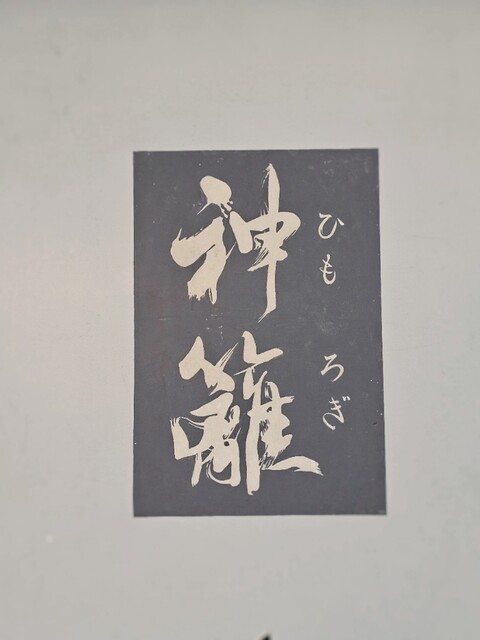 神籬
ひもろぎ